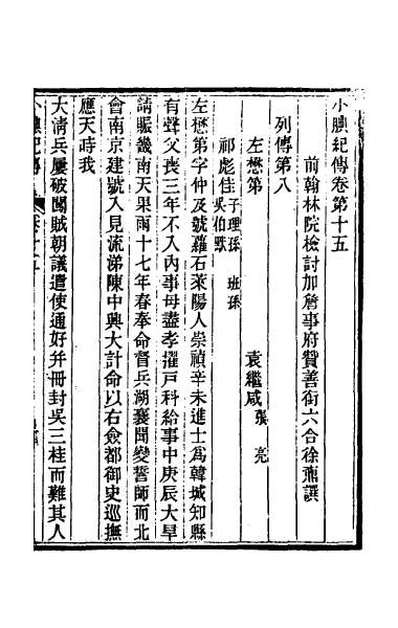 小腆紀傳卷第十五
前翰林院檢討加詹事府贊善銜六合徐鼒譔
列傳第八
左懋第 袁繼咸 張亮
祁彪佳 子理孫 班孫 吳伯默
左懋第字仲及號蘿石萊陽人崇禎辛未進士爲韓城知縣
有聲父喪三年不入內事母盡孝擢戶科給事中庚辰大旱
請賑畿南天果雨十七年春奉命督兵湖襄聞變誓師而北
會南京建號入見流涕陳中興大計命以右僉都御史巡撫
應天時我
大淸兵屢破闖賊朝議遣使通好并冊封吳三桂而難其人
小腆紀傳 卷十五